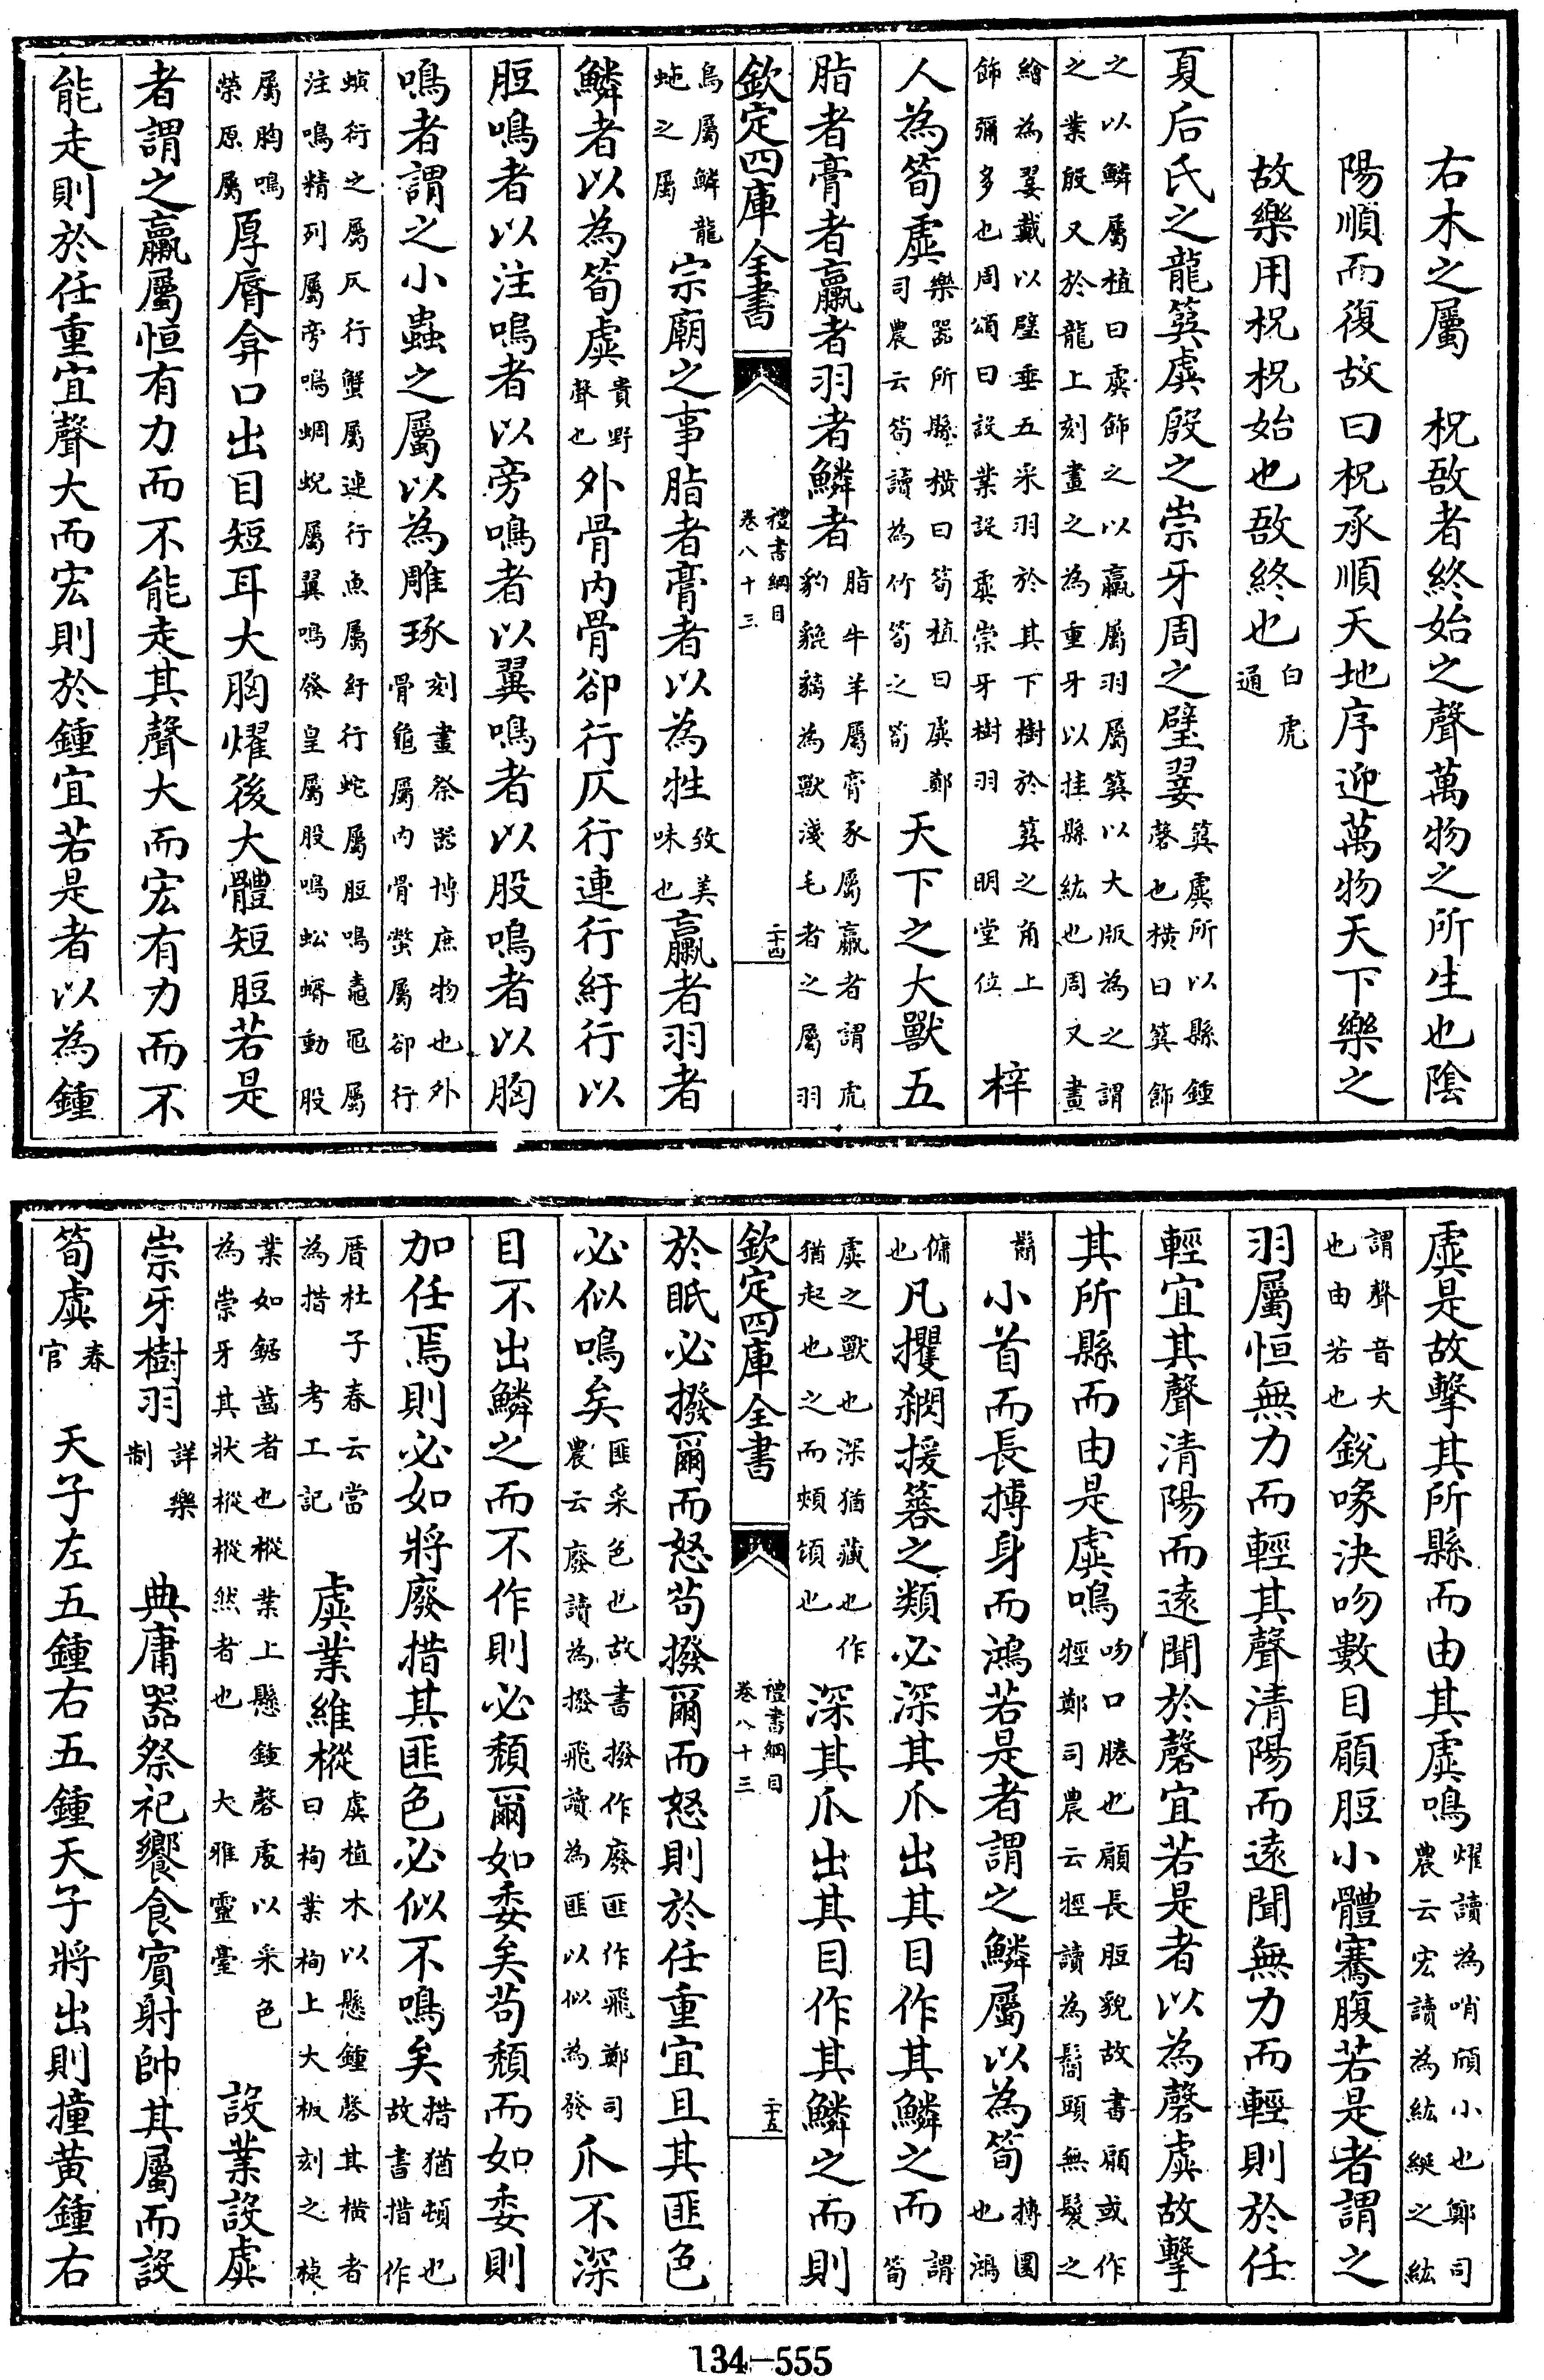 右木之屬　柷敔者終始之聲萬物之所生也陰
陽順而復故曰柷承順天地序迎萬物天下樂之
故樂用柷柷始也敔終也白虎通
夏后氏之龍簨虡殷之崇牙周之璧翣簨虡所以縣鍾磬也橫曰簨飾
之以鱗屬植曰虡飾之以臝屬羽屬簨以大版為之謂之業殷又於龍上刻畫之為重牙以挂縣紘也周又畫
繒為翣戴以璧垂五采羽於其下樹於簨之角上飾彌多也周頌曰設業設虡崇牙樹羽　明堂位　梓
人為筍虡樂器所縣橫曰筍植曰虡鄭司農云筍讀為竹筍之筍　天下之大獸五
脂者膏者臝者羽者鱗者脂牛羊屬膏豕屬臝者謂虎豹貔貐為獸淺毛者之屬羽
欽定四庫全書　禮書綱目卷八十三　二十四
鳥屬鱗龍蛇之屬宗廟之事脂者膏者以為牲致美味也臝者羽者
鱗者以為筍虡貴野聲也外骨內骨卻行仄行連行紆行以
脰鳴者以注鳴者以旁鳴者以翼鳴者以股鳴者以胸
鳴者謂之小蟲之屬以為雕琢刻畫祭器博庶物也外骨龜屬內骨鱉屬卻行
螾衍之屬仄行蟹屬連行魚屬紆行蛇屬脰鳴鼃黽屬注鳴精列屬旁鳴蜩蜺屬翼鳴發皇屬股鳴蚣蝑動股
屬胸鳴榮原屬厚脣弇口出目短耳大胸燿後大體短脰若是
者謂之臝屬恒有力而不能走其聲大而宏有力而不
能走則於任重宜聲大而宏則於鍾宜若是者以為鍾
虡是故擊其所縣而由其虡鳴燿讀為哨頎小也鄭司農云宏讀為紘綖之紘
謂聲音大也由若也銳喙決吻數目顅脰小體騫腹若是者謂之
羽屬恒無力而輕其聲清陽而遠聞無力而輕則於任
輕宜其聲清陽而遠聞於磬宜若是者以為磬虡故擊
其所縣而由是虡鳴吻口腃也顅長脰貌故書顅或作牼鄭司農云牼讀為鬜頭無髮之
鬜　小首而長摶身而鴻若是者謂之鱗屬以為筍摶圜也鴻
傭也凡攫閷援簭之類必深其爪出其目作其鱗之而謂筍
虡之獸也深猶藏也作猶起也之而頰頌也深其爪出其目作其鱗之而則
欽定四庫全書　禮書綱目卷八十三　二十五
於眂必撥爾而怒茍撥爾而怒則於任重宜且其匪色
必似鳴矣匪采色也故書撥作廢匪作飛鄭司農云廢讀為撥飛讀為匪以似為發爪不深
目不出鱗之而不作則必穨爾如委矣茍穨而如委則
加任焉則必如將廢措其匪色必似不鳴矣措猶頓也故書措作
厝杜子春云當為措　考工記　虡業維樅虡植木以懸鍾磬其橫者曰栒業栒上大板刻之捷
業如鋸齒者也樅業上懸鍾磬處以采色為崇牙其狀樅樅然者也　大雅靈臺　設業設虡
崇牙樹羽詳樂制　典庸器祭祀饗食賓射帥其屬而設
筍虡春官　天子左五鍾右五鍾天子將出則撞黃鍾右
134—555